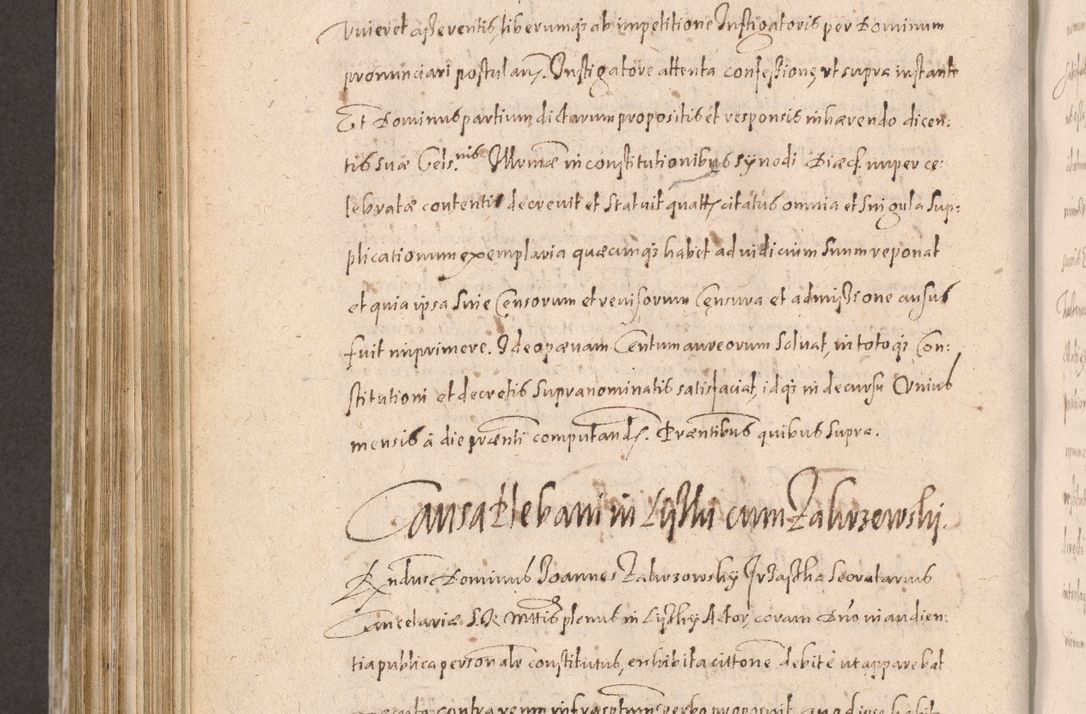 vuieret asserentis, liberumq3 ab impetitione Instigatoris per Dominum
pronunciari postulans. Instigatore attenta confessione, ut supra instante
Et Dominus partium dictarum propositis et responsis inhærendo dicen:
tis suæ Cels.nis Illrmæ in constitutionibus synodi Diæc. nuper ce:
lebratæ contentis decrevit et statuit quatt. citatus omnia et singula sup:
plicationum exemplaria quæcumq3 habet ad iudicium suum reponat
et quia ipsa sine Censorum et revisorum Censura et admissione ausus
fuit imprimere. Ideo pænam Centum aureorum solvat, in totoq3 Con:
stitutioni et decretis supranominatis satisfaciat, idq3 in decursu Unius
mensis à die prænti computand. Præntibus quibus supra.
Causa Plebani in Lysky cum Zakrzewsky.
Rndus Dominus Joannes Zakrzowsky Secretarius
Cancelariæ S. R. Mttis plenus in Lysky Actor, coram Dno in audien:
tia publica personalr constitutus, exhibita cittone debite ut apparebat
contra reum infrasptum verbo proposuit, quod ipse habit